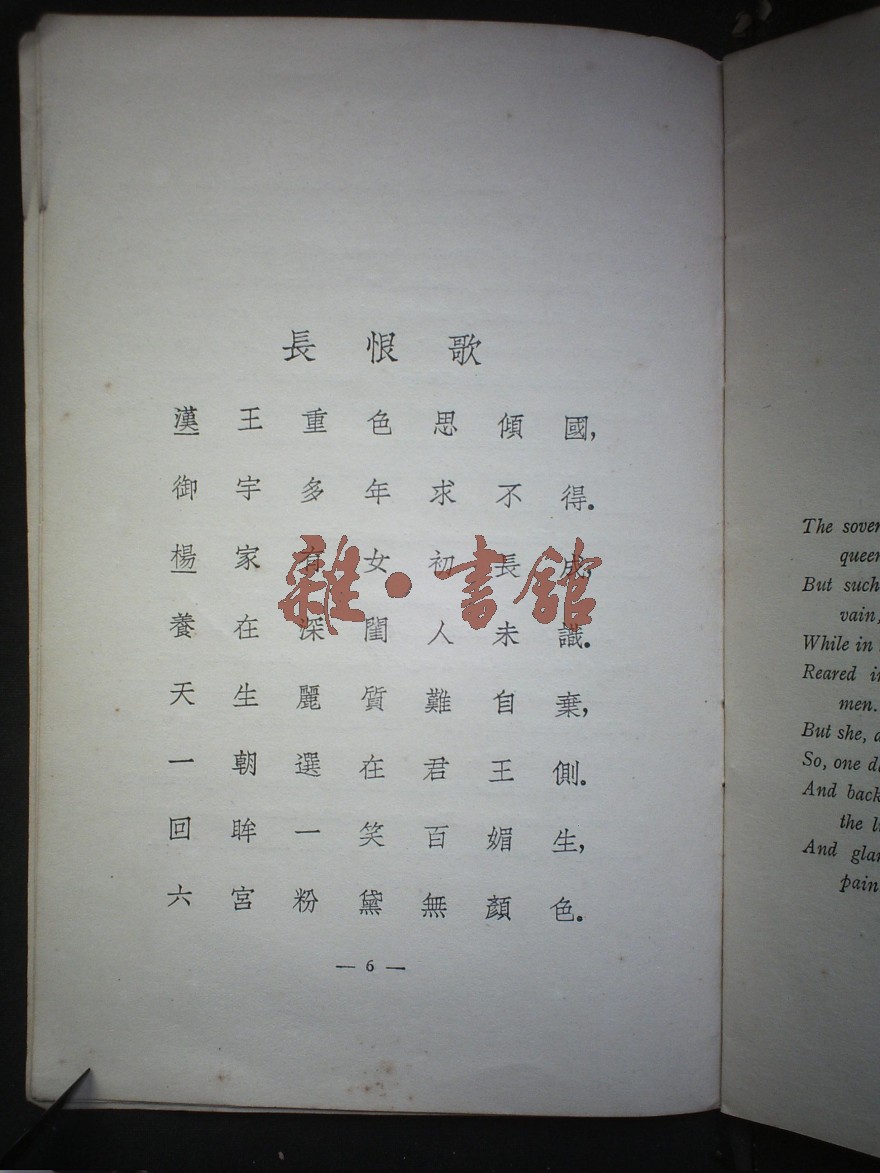 長恨歌
漢王重色思傾國,
御宇多年求不得.
楊家有女初長成,
養在深閨人未識.
天生麗質難自棄,
一朝選在君王側.
回眸一笑百媚生,
六宮粉黛無顏色.
— 6 —
雜·書館
The sover
queen
But such
vain,
While in
Reared i
men.
But she, a
So, one d
And back
the l
And glan
pain